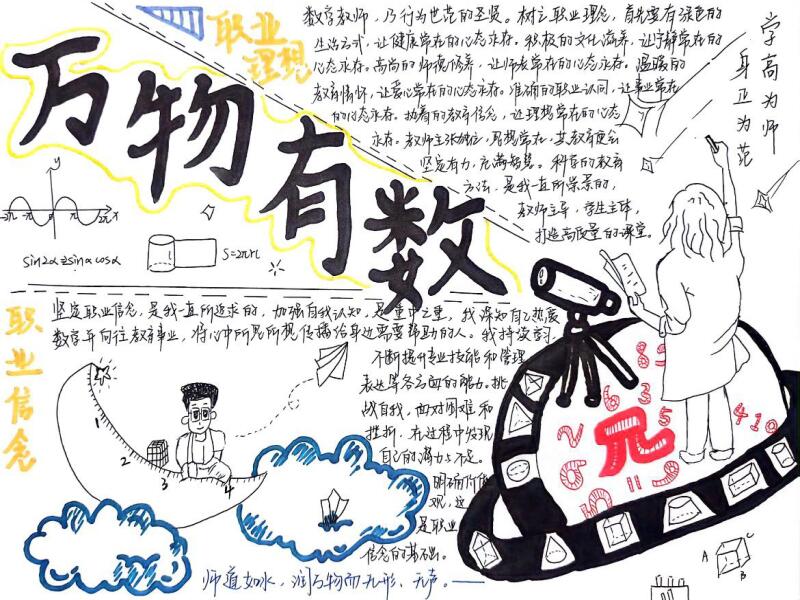 万物有数
职业
理想
数学教师，乃行为世范的圣贤。树立职业理念，首先要有绿色的
生活方式，让健康常在的心态永存。积极的文化滋养，让宁静常在的
心态永存。高尚的师德修养，让师表常在的心态永存。温暖的
教育情怀，让爱心常在的心态永存。准确的职业认同，让事业常在
的心态永存。执着的教育信念，让理想常在的心态
永存。教师主张树立，思想常在，其教育便会
坚定有力，充满智慧。科存的教育
方法，是我一直所崇景的，
教师主导，学生主体，
打造高质量的课堂。
学高为师
身正为范
y
-2π -π 0 π 2π x
sin2α=2sinαcosα
S=2πrl
职业信念
坚定职业信念，是我一直所追求的，加强自我认知，是重中之重，我深知自己热爱
数学并向往教育事业，将心中所见所想传播给身边需要帮助的人。我持续学习，
不断提升专业技能和管理
表达等各方面的能力。挑
战自我，面对困难和
挫折，在过程中发现
自己的潜力与不足。
明确价值
观，这
是职业
信念的基础。
1
2
3
4
师道如水，润万物而无形、无声。——
8 3
6 3
2 π 5
6 9
5 11
4 1 0
A B C